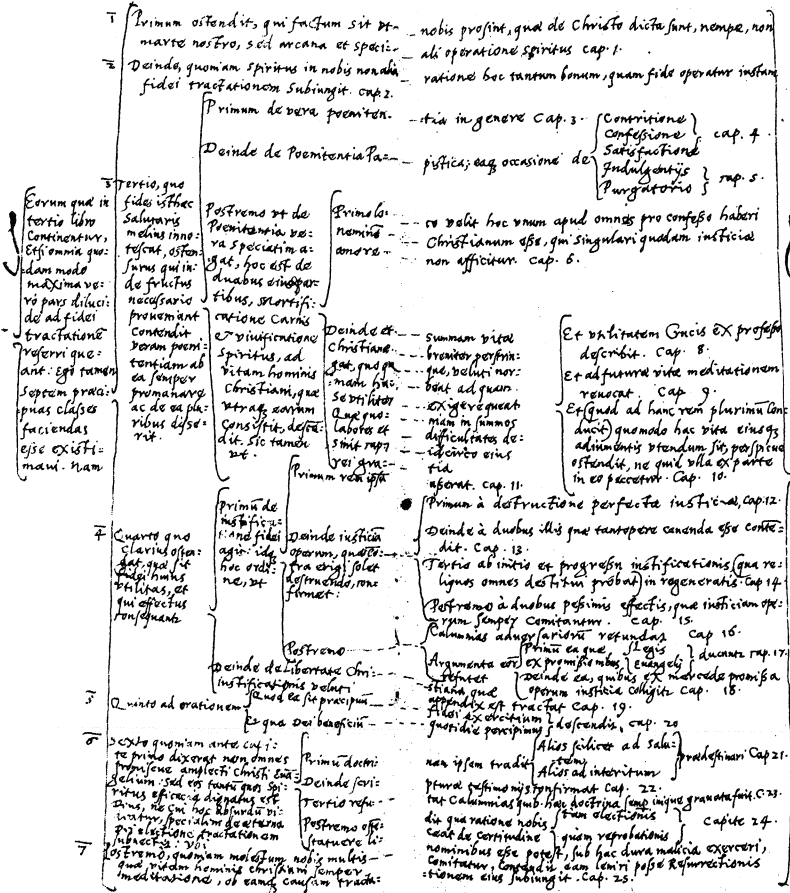 1 Primum ostendit, qui factum sit vt nobis prosint, quæ de Christo dicta sunt, nempe, non
marte nostro, sed arcana et speciali operatione spiritus Cap. 1.
2 Deinde, quoniam Spiritus in nobis non alia ratione hoc tantum bonum, quam fide operatur iustam
fidei tractationem subiungit. cap. 2.
Eorum quæ in
tertio libro
Continentur,
Etsi omnia quo-
dam modo
maxima ve-
ro pars diluci-
de ad fidei
tractationē
referri que-
ant: Ego tamen
septem præci-
puas classes
faciendas
esse existi-
maui. Nam
3 Tertio, quo
fides isthæc
Salutaris
melius inno-
tescat, osten-
surus qui in-
de fructus
necessario
proueniant
Contendit
veram poeni-
tentiam ab
ea semper
promanare
ac de ea plu-
ribus disse-
rit.
Primum de vera poenitentia in genere Cap. 3.
Deinde de Poenitentia Papistica; eaq occasione de
Contritione
Confessione
Satisfactione
cap. 4
Indulgentijs
Purgatorio
cap. 5.
Postremo vt de
Poenitentia ve-
ra speciatim a-
gat, hoc est de
duabus eius par-
tibus, Mortifi-
catione Carnis
& viuificatione
Spiritus, ad
vitam hominis
Christiani, quæ
vtraq eorum
Consistit, descē-
dit. Sic tamen
vt.
Primo lo- co velit hoc vnum apud omnes pro confesso haberi
nemine Christianum esse, qui singulari quodam iusticiæ
amore non afficitur. Cap. 6.
Deinde et summam vitæ
Christianæ breuiter perstrin-
gat, quo que, veluti nor-
nam ha- beat ad quam
Se vtiliter exigere queat
Quæ quo- niam in summos
labores et difficultates de-
idcirco eius
rei gra- tia
Cap. 11.
Et vtilitatem Crucis ex professo
describit. Cap. 8.
Et ad futuræ vitæ meditationem
reuocat. Cap 9.
Et (quod ad hanc rem plurimum con-
ducit) quomodo hac vita eiusq
adiumentis vtendum sit, perspicue
ostendit, ne quid vlla ex parte
in eo peccetur. Cap. 10.
4 Quarto quo
Clarius osten-
dat, quæ sit
fidei huius
vtilitas, et
qui effectus
consequantr
Primū de
iustifica-
tione fidei
agit: idq
hoc ordi-
ne, vt
Primum rem ipsā
Deinde iusticiā
operum, quæ cō-
tra erigi solet
destruendo, con-
firmet:
Primum à destructione perfectæ iusticiæ, Cap. 12.
Deinde à duobus illis quæ tantopere cauenda esse conte-
dit. Cap. 13.
Tertio ab initio et progressu iustificationis (qua re-
liquos omnes destitui probat) in regeneratis Cap 14
Postremo à duobus pessimis effectis, quæ iusticiam ope-
rum semper Comitantur. Cap. 15.
Postremo
Calumnias aduersariorū retundat Cap 16.
Argumenta eorū refutet
Primū ea quæ ex promissionibus
Legis
Euangelij
ducantr cap. 17.
Deinde ea, quibus ex mercede promissa
operum iusticia colligitr Cap. 18.
Deinde de Libertate Christiana quæ
iustificationis veluti appendix est tractat Cap. 19.
5 Quinto ad orationem
Quod ea sit præcipuum fidei exercitium
Et qua Dei beneficiū quotidie percipimus
descendit, cap. 20
6 Sexto quoniam ante Capi-
te primo dixerat non omnes
promiscue amplecti Christi Euā-
gelium: Sed eos tantū quos Spi-
ritus efficacia dignatus est
Deus, ne cui hoc absurdū vi-
deatur, specialem de æterna
Dei electione tractationem
subnectit: vbi
Primū doctri- nam ipsam tradit
Alios scilicet ad Salu-
tem
Alios ad interitum
prædestinari Cap 21.
Deinde scri- pturæ testimonijs confirmat Cap. 22.
Tertio refu- tat Calumnias quib. hæc doctrina semp inique grauata fuit. C. 23.
Postremo oste- dit qua ratione nobis
statuere li- ceat de certitudine
tum electionis
quam reprobationis
Capite 24.
7 Postremo, quoniam molestum nobis multis nominibus esse potest, sub hac dura malicia exerceri,
quæ vitam hominis christiani semper Comitatur, Contendit eam leniri posse Resurrectionis
meditatione, ob eamq Causam tracta- tionem eius subiungit. Cap. 25.